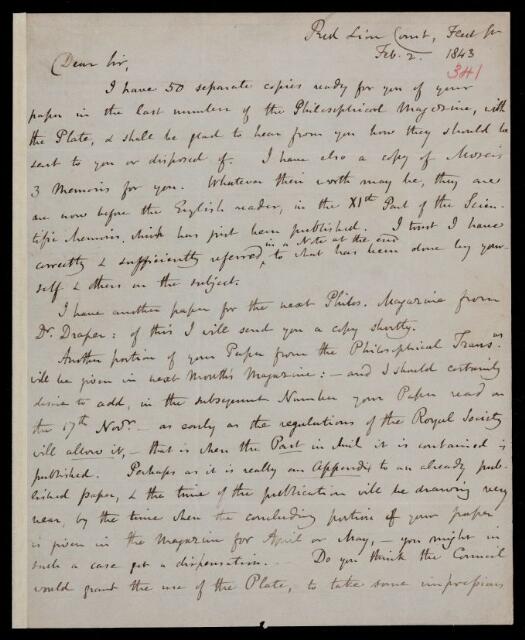 Red Lion Court, Fleet St
Feb. 2. 1843
341
Dear Sir,
I have 50 separate copies ready for you of your
paper in the last number of the Philosophical Magazine, with
the Plate, & shall be glad to hear from you how they should be
sent to you or disposed of. I have also a copy of Moser's
3 Memoirs for you. Whatever their worth may be, they are
are now before the English reader, in the XIth Part of the Scien-
tific Memoirs, which has just been published. I trust I have
in a Note at the end
correctly & sufficiently referred, to what has been done by your-
self & others on the subject.
I have another paper for the next Philos. Magazine from
Dr. Draper: of this I will send you a copy shortly.
Another portion of your Paper from the Philosophical Transns
will be given in next Month's Magazine: — and I should certainly
desire to add, in the subsequent Number your Paper read on
the 17th Novr. — as early as the regulations of the Royal Society
will allow it, — that is when the Part in which it is contained is
published. Perhaps as it is really an Appendix to an already pub-
lished paper, & the time of the publication will be drawing very
near, by the time when the concluding portion of your paper
is given in the Magazine for April or May, — you might in
such a case get a dispensation. — Do you think the Council
would grant the use of the Plate, to take some impressions